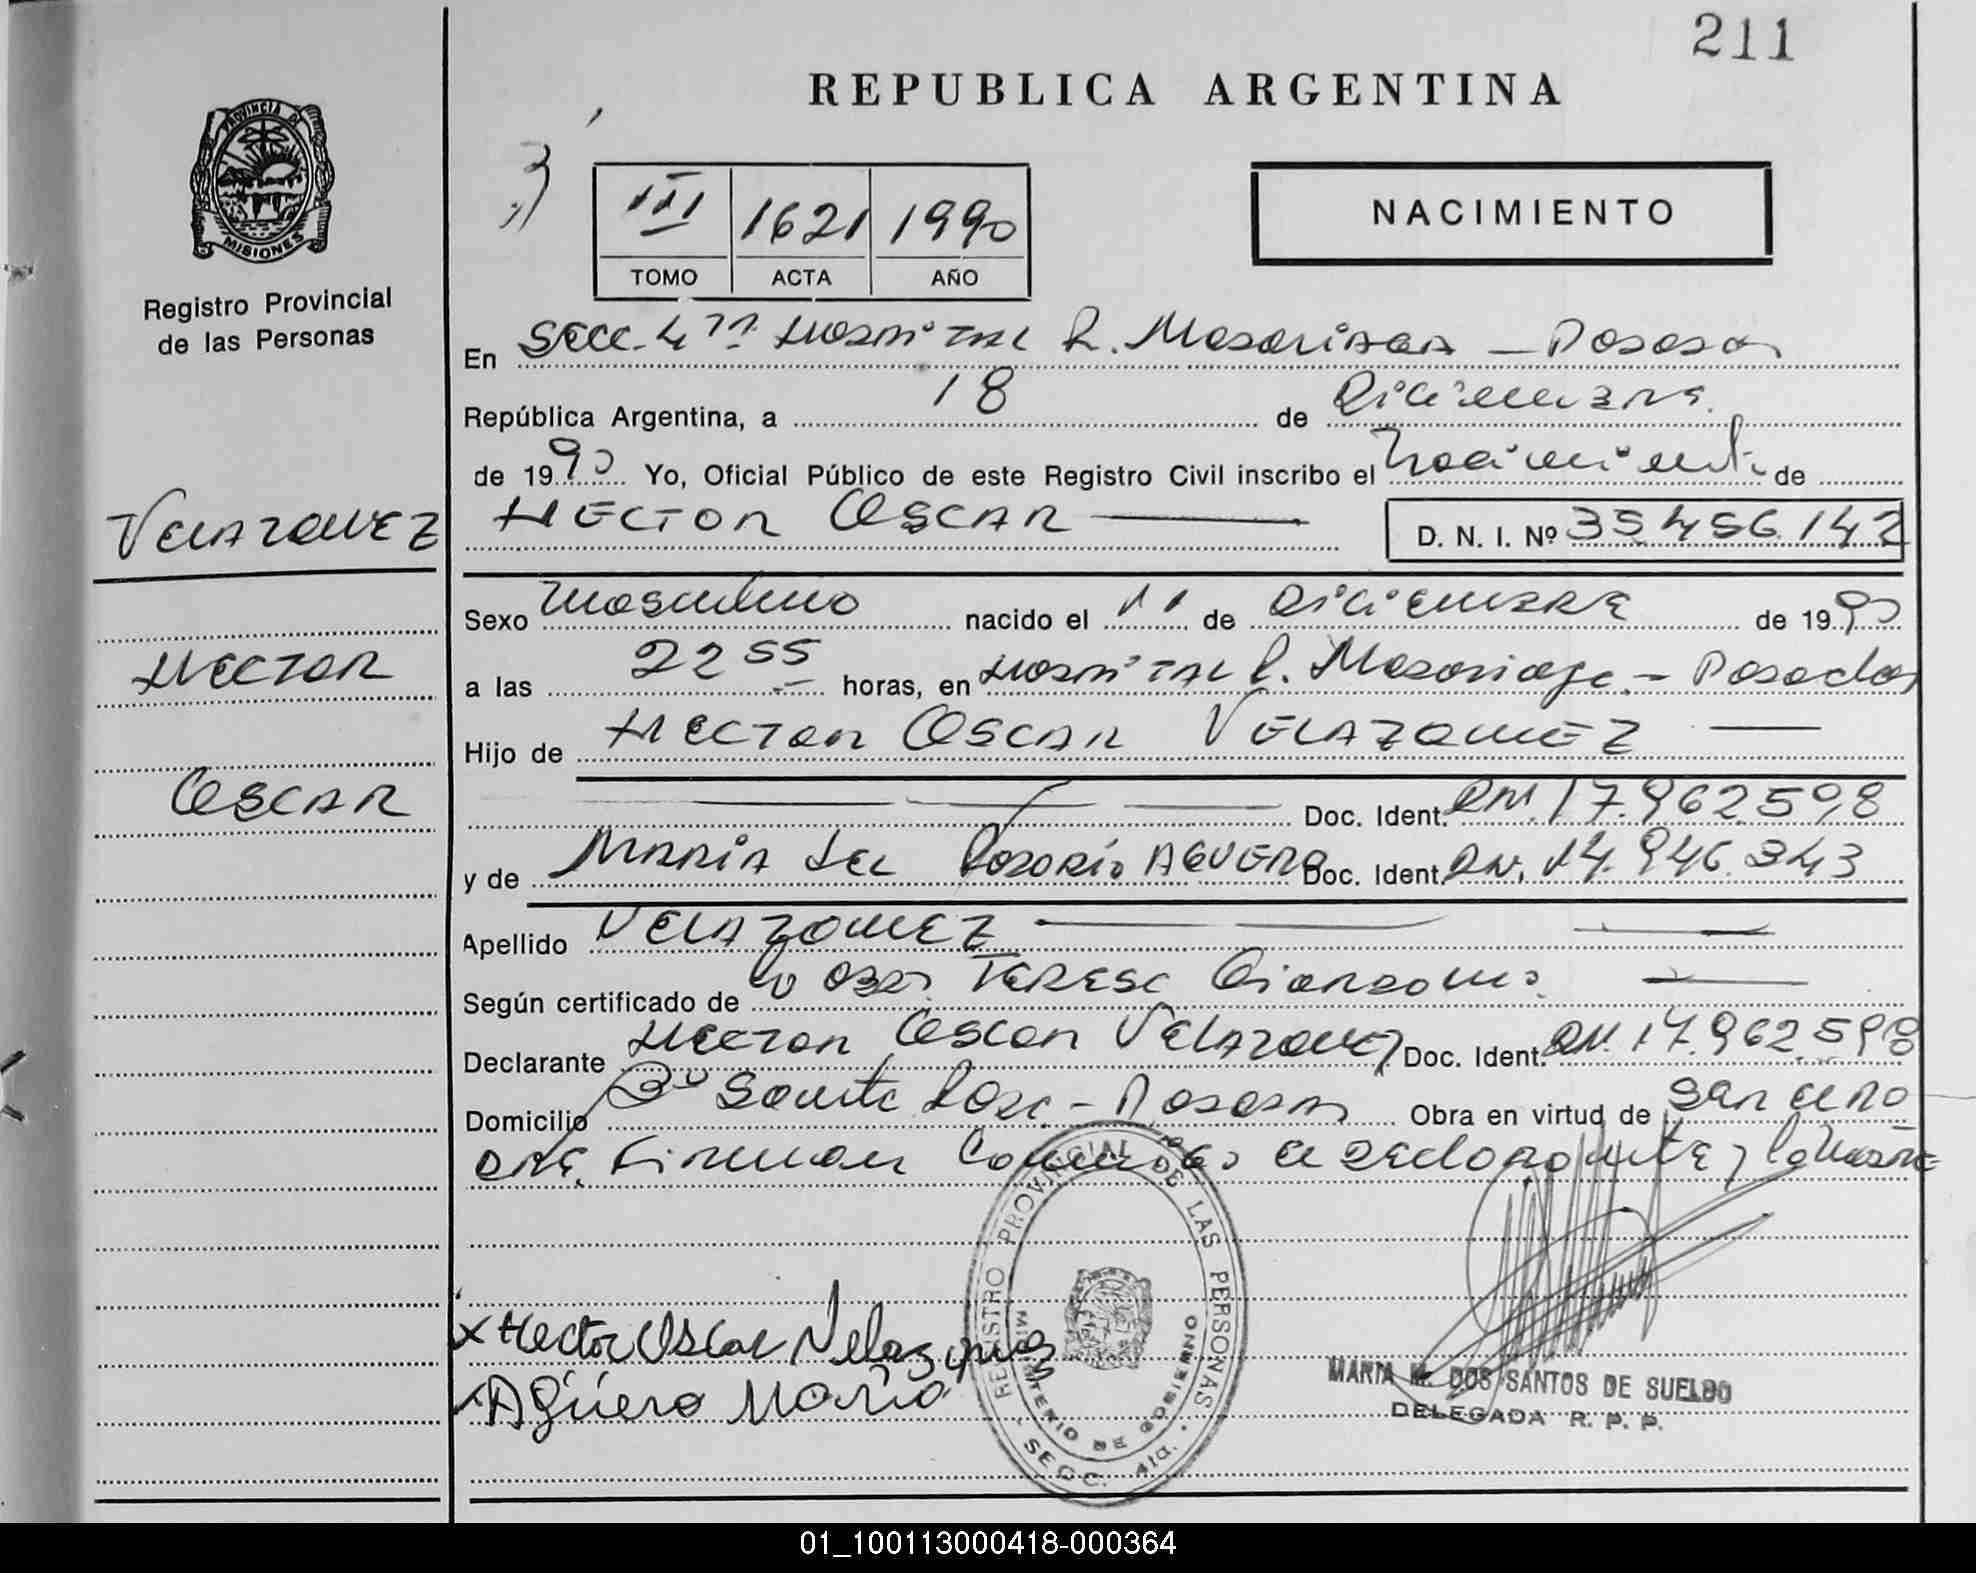 211
REPUBLICA ARGENTINA
PROVINCIA DE
MISIONES
Registro Provincial
de las Personas
III 1621 1990
TOMO ACTA AÑO
NACIMIENTO
En Secc. 4ta Hospital R. Madariaga - Posadas
República Argentina, a 18 de Diciembre
de 1990 Yo, Oficial Público de este Registro Civil inscribo el Nacimiento de
VELAZQUEZ
HECTOR OSCAR
D. N. I. Nº 35.456.142
Sexo Masculino nacido el 11 de Diciembre de 1990
HECTOR
a las 22 55 horas, en Hospital R. Madariaga - Posadas
Hijo de HECTOR OSCAR VELAZQUEZ
OSCAR
Doc. Ident. DNI. 17.962.598
y de MARIA DEL ROSARIO AGUERO Doc. Ident. DNI. 14.946.343
Apellido VELAZQUEZ
Según certificado de la Obst. Teresa
Declarante Hector Oscar Velazquez Doc. Ident. DNI. 17.962.598
Domicilio Bº Santa Rosa - Posadas Obra en virtud de ser el PADRE
que firman conmigo el declarante y la Madre
x Hector Oscar Velazquez
Agüero Maria
REGISTRO PROVINCIAL DE LAS PERSONAS
MINISTERIO DE GOBIERNO
SECC. 4ta.
MARIA M. DOS SANTOS DE SUELDO
DELEGADA R. P. P.
01_100113000418-000364